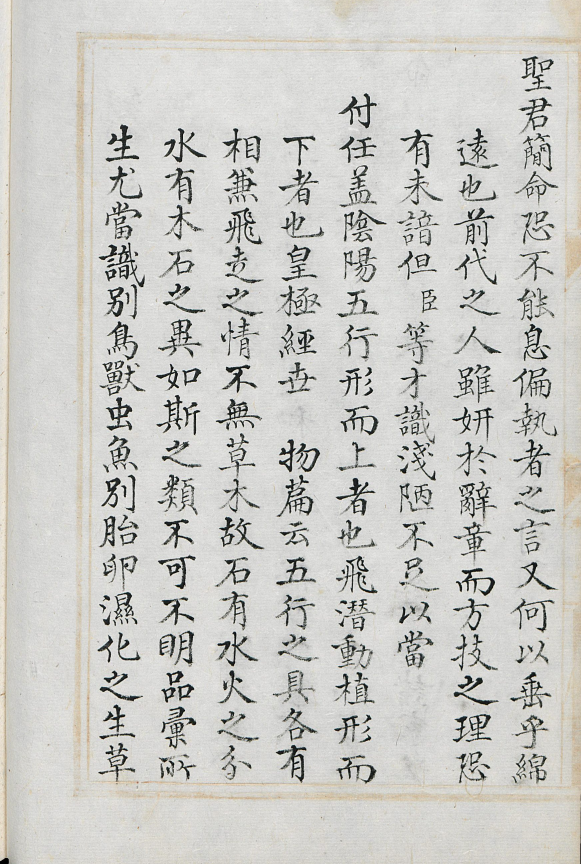 聖君簡命恐不能息偏執者之言又何以垂乎綿
遠也前代之人雖妍於辭章而方技之理恐
有未諳但臣等才識淺陋不足以當
付任盖陰陽五行形而上者也飛潛動植形而
下者也皇極經世 物篇云五行之具各有
相兼飛走之情不無草木故石有水火之分
水有木石之異如斯之類不可不明品彙所
生尤當識別鳥獸虫魚別胎卵濕化之生草